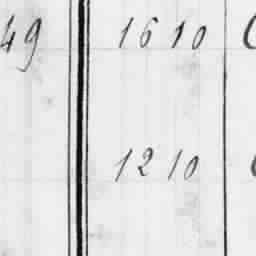 49 16 10
12 10